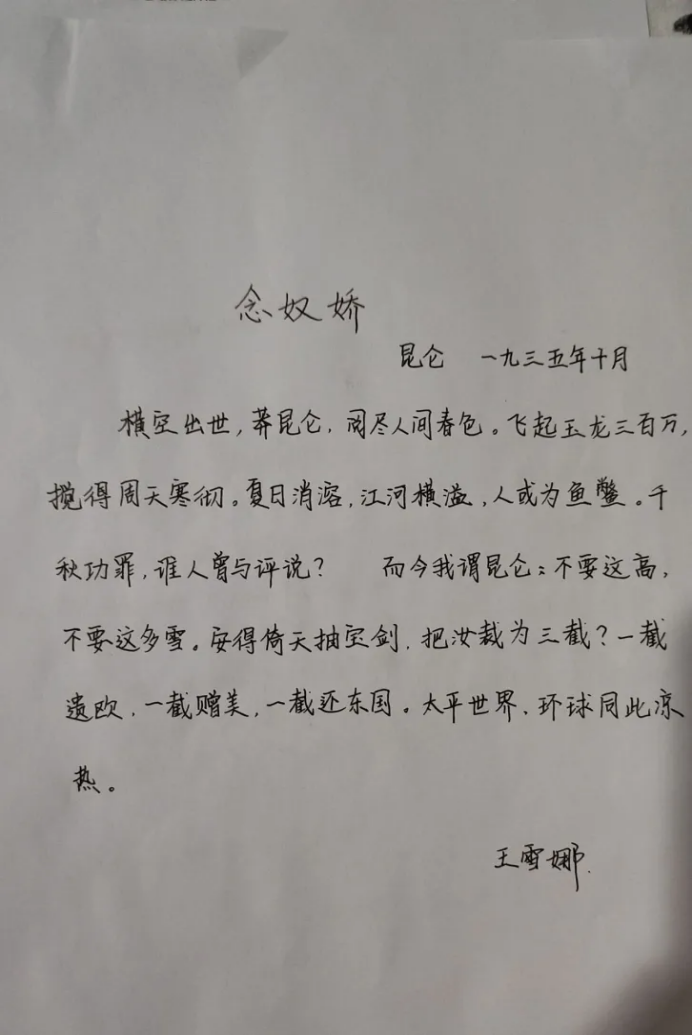 念奴娇
昆仑 一九三五年十月
横空出世,莽昆仑,阅尽人间春色。飞起玉龙三百万,
搅得周天寒彻。夏日消溶,江河横溢,人或为鱼鳖。千
秋功罪,谁人曾与评说? 而今我谓昆仑:不要这高,
不要这多雪。安得倚天抽宝剑,把汝裁为三截?一截
遗欧,一截赠美,一截还东国。太平世界,环球同此凉
热。
王雪娜.